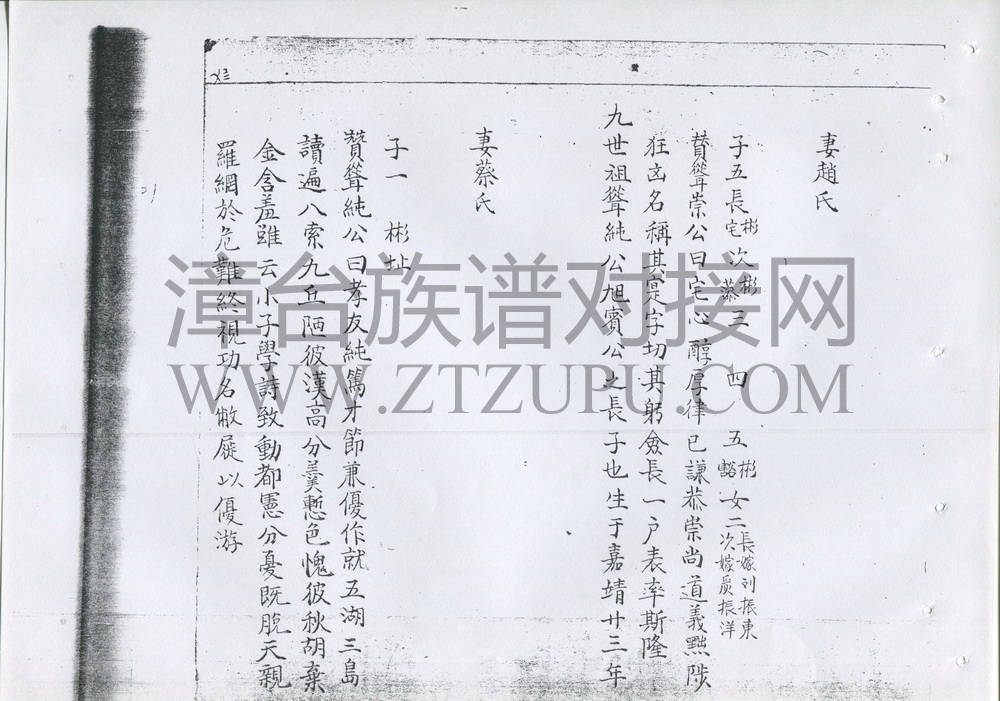 妻趙氏
子五長彬宅次彬恭三 四 五彬豁女二長嫁列振東次嫁質振洋
贊聳崇公曰宅心醇厚律已謙恭崇尚道義黑陟
狂卤名稱其寔字切其躬僉長一戶表率斯隆
九世祖聳純公旭賓公之長子也生于嘉靖廿三年
妻蔡氏
子一 彬址
贊聳純公曰孝友純篤才節兼優作就五湖三島
讀遍八索九丘陋彼漢高分羹慙色愧彼秋胡棄
金含羞雖云小子學詩致動都憲分憂既脫天親
羅網於危難終視功名敝屣以優游
漳台族谱对接网
WWW.ZTZUPU.COM